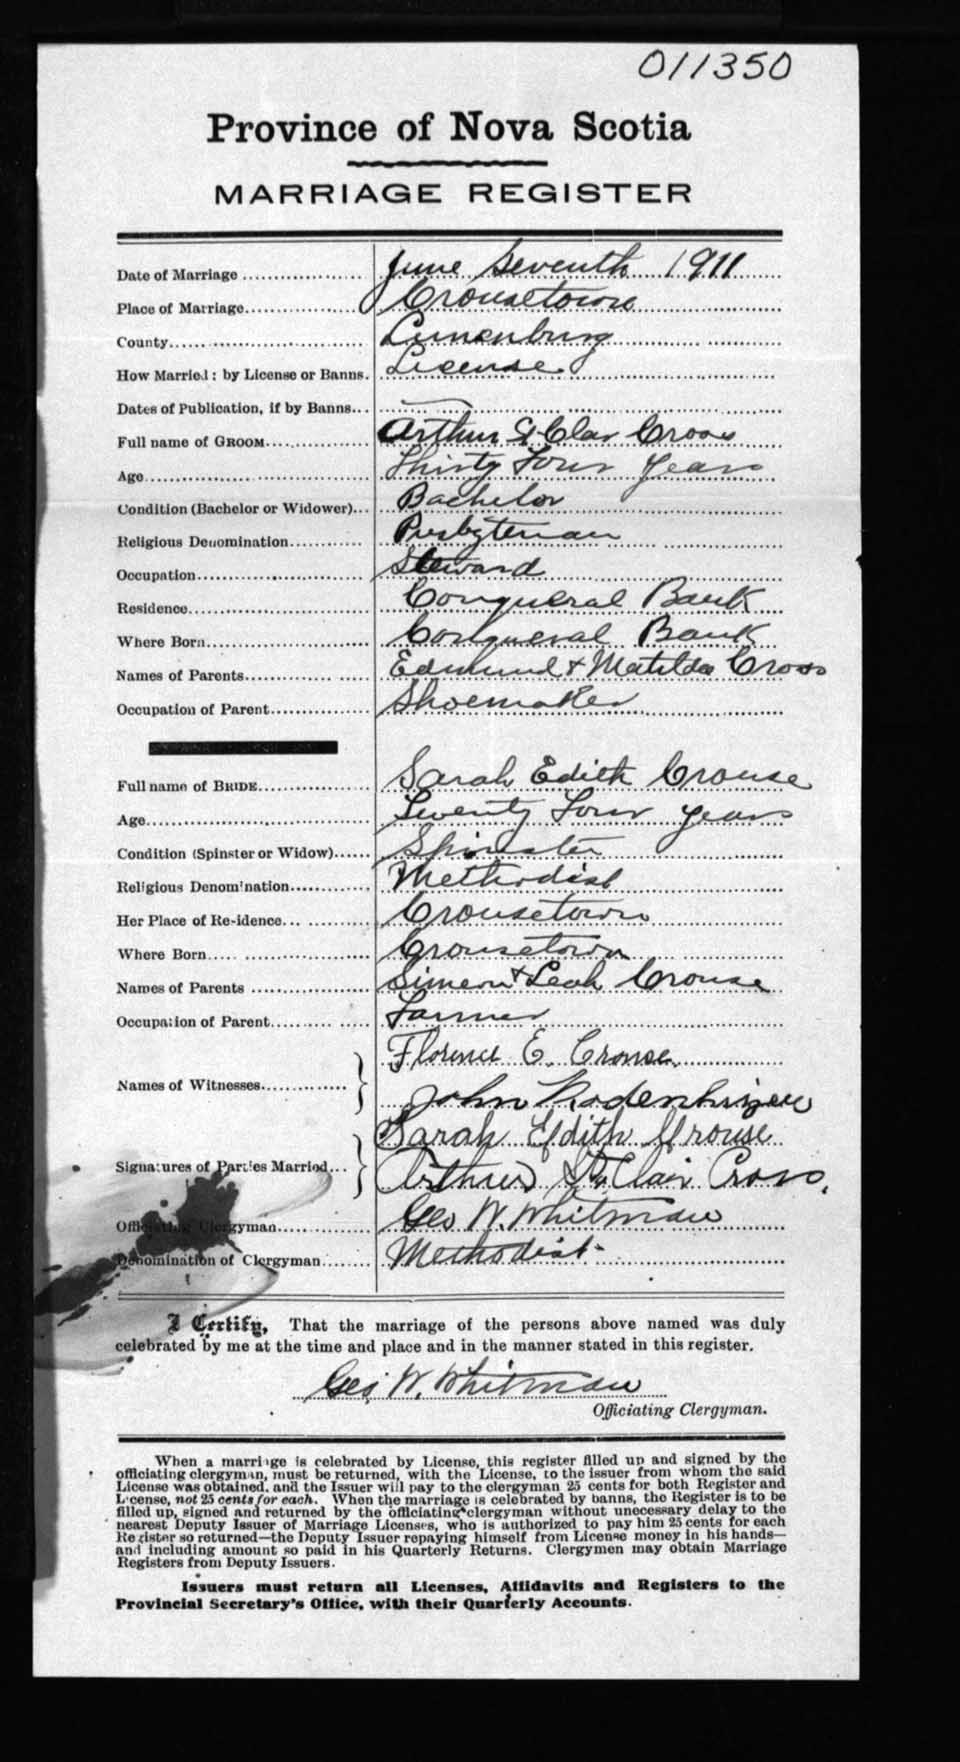 011350
Province of Nova Scotia
MARRIAGE REGISTER
Date of Marriage .................. June Seventh 1911
Place of Marriage.................. Crousetown
County.................. Lunenburg
How Married: by License or Banns. License
Dates of Publication, if by Banns... —
Full name of GROOM.................. Arthur St Clair Cross
Age.................. Thirty Four Years
Condition (Bachelor or Widower)... Bachelor
Religious Denomination............ Presbyterian
Occupation.................. Steward
Residence.................. Conqueral Bank
Where Born.................. Conqueral Bank
Names of Parents.................. Edmund & Matilda Cross
Occupation of Parent............... Shoemaker
Full name of BRIDE.................. Sarah Edith Crouse
Age.................. Twenty Four years
Condition (Spinster or Widow)...... Spinster
Religious Denomination............ Methodist
Her Place of Residence............ Crousetown
Where Born.................. Crousetown
Names of Parents .................. Simeon & Leah Crouse
Occupation of Parent............... Farmer
Florence E. Crouse
Names of Witnesses.............
John
Sarah Edith Crouse
Signatures of Parties Married...
Arthur St. Clair Cross.
Officiating Clergyman............. Geo W. Whitman
Denomination of Clergyman........ Methodist
I Certify, That the marriage of the persons above named was duly
celebrated by me at the time and place and in the manner stated in this register.
Geo. W. Whitman
Officiating Clergyman.
When a marriage is celebrated by License, this register filled up and signed by the
officiating clergyman, must be returned, with the License, to the issuer from whom the said
License was obtained, and the Issuer will pay to the clergyman 25 cents for both Register and
License, not 25 cents for each. When the marriage is celebrated by banns, the Register is to be
filled up, signed and returned by the officiating clergyman without unecessary delay to the
nearest Deputy Issuer of Marriage Licenses, who is authorized to pay him 25 cents for each
Register so returned—the Deputy Issuer repaying himself from License money in his hands—
and including amount so paid in his Quarterly Returns. Clergymen may obtain Marriage
Registers from Deputy Issuers.
Issuers must return all Licenses, Affidavits and Registers to the
Provincial Secretary's Office, with their Quarterly Accounts.